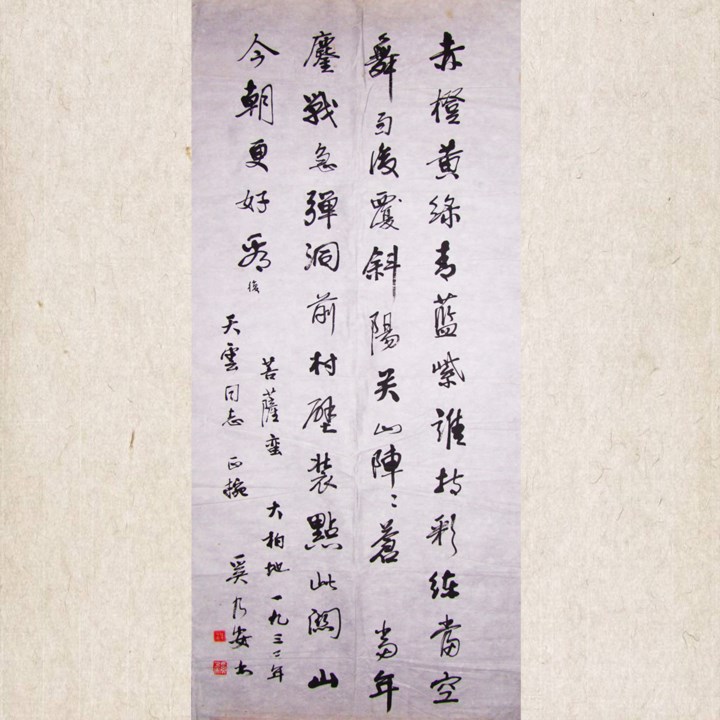 赤橙黄綠青藍紫誰持彩練當空
舞雨後覆斜陽关山陣〻蒼 當年
鏖戰急彈洞前村壁裝點此關山
今朝更好看 後
菩薩蛮 大柏地 一九三三年
天雲同志 正腕 奚乃安书